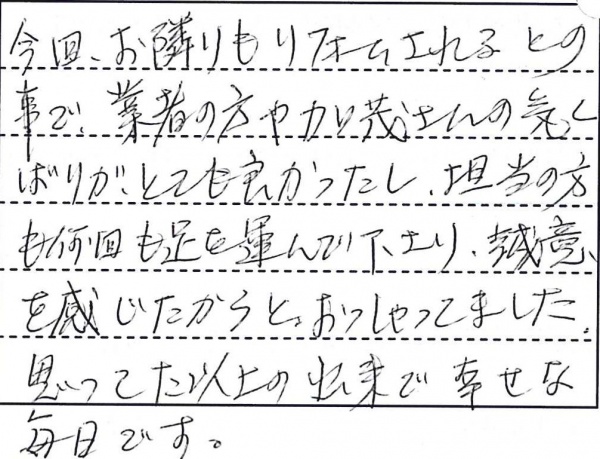 今回、お隣りもリフォームされるとの
事で、業者の方や加茂さんの気く
ばりが、とても良かったし、担当の方
も何回も足を運んで下さり、誠意
を感じたからと、おっしゃってました。
思ってた以上の出来で幸せな
毎日です。